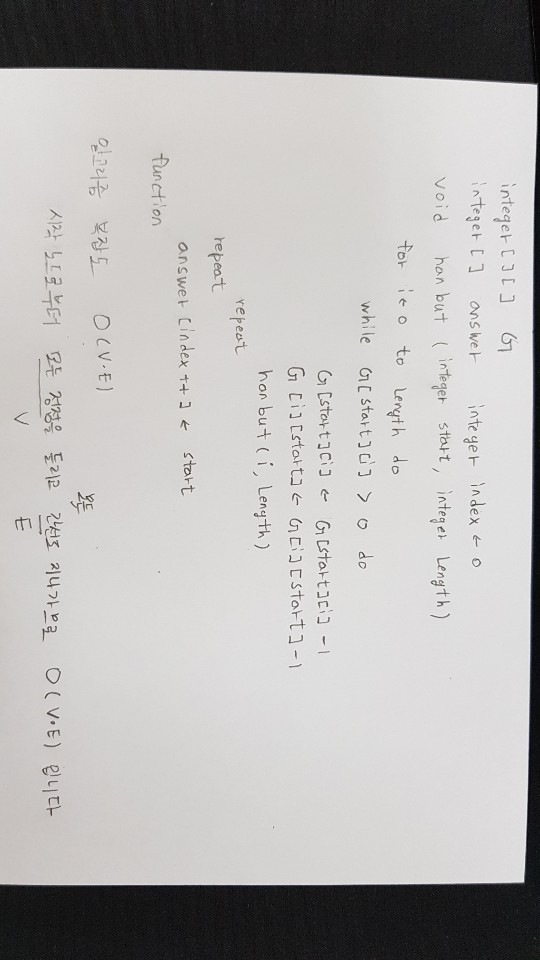 integer[][] G
integer[] answer integer index ← 0
void hanbut (integer start, integer Length)
for i ← 0 to Length do
while G[start][i] > 0 do
G[start][i] ← G[start][i] -1
G[i][start] ← G[i][start] -1
hanbut(i, Length)
repeat
repeat
answer [index ++] ← start
function
알고리즘 복잡도 O(V·E)
시작 노드로부터 모든 정점을 들리고 간선도 지나가므로 O(V·E) 입니다
V E